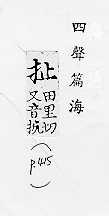 四聲篇海
扯
田里切
又音抗
(p.415)